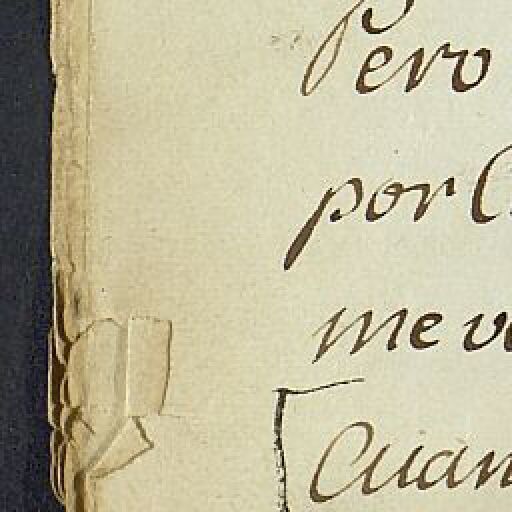 Pero
por
me
Cuan